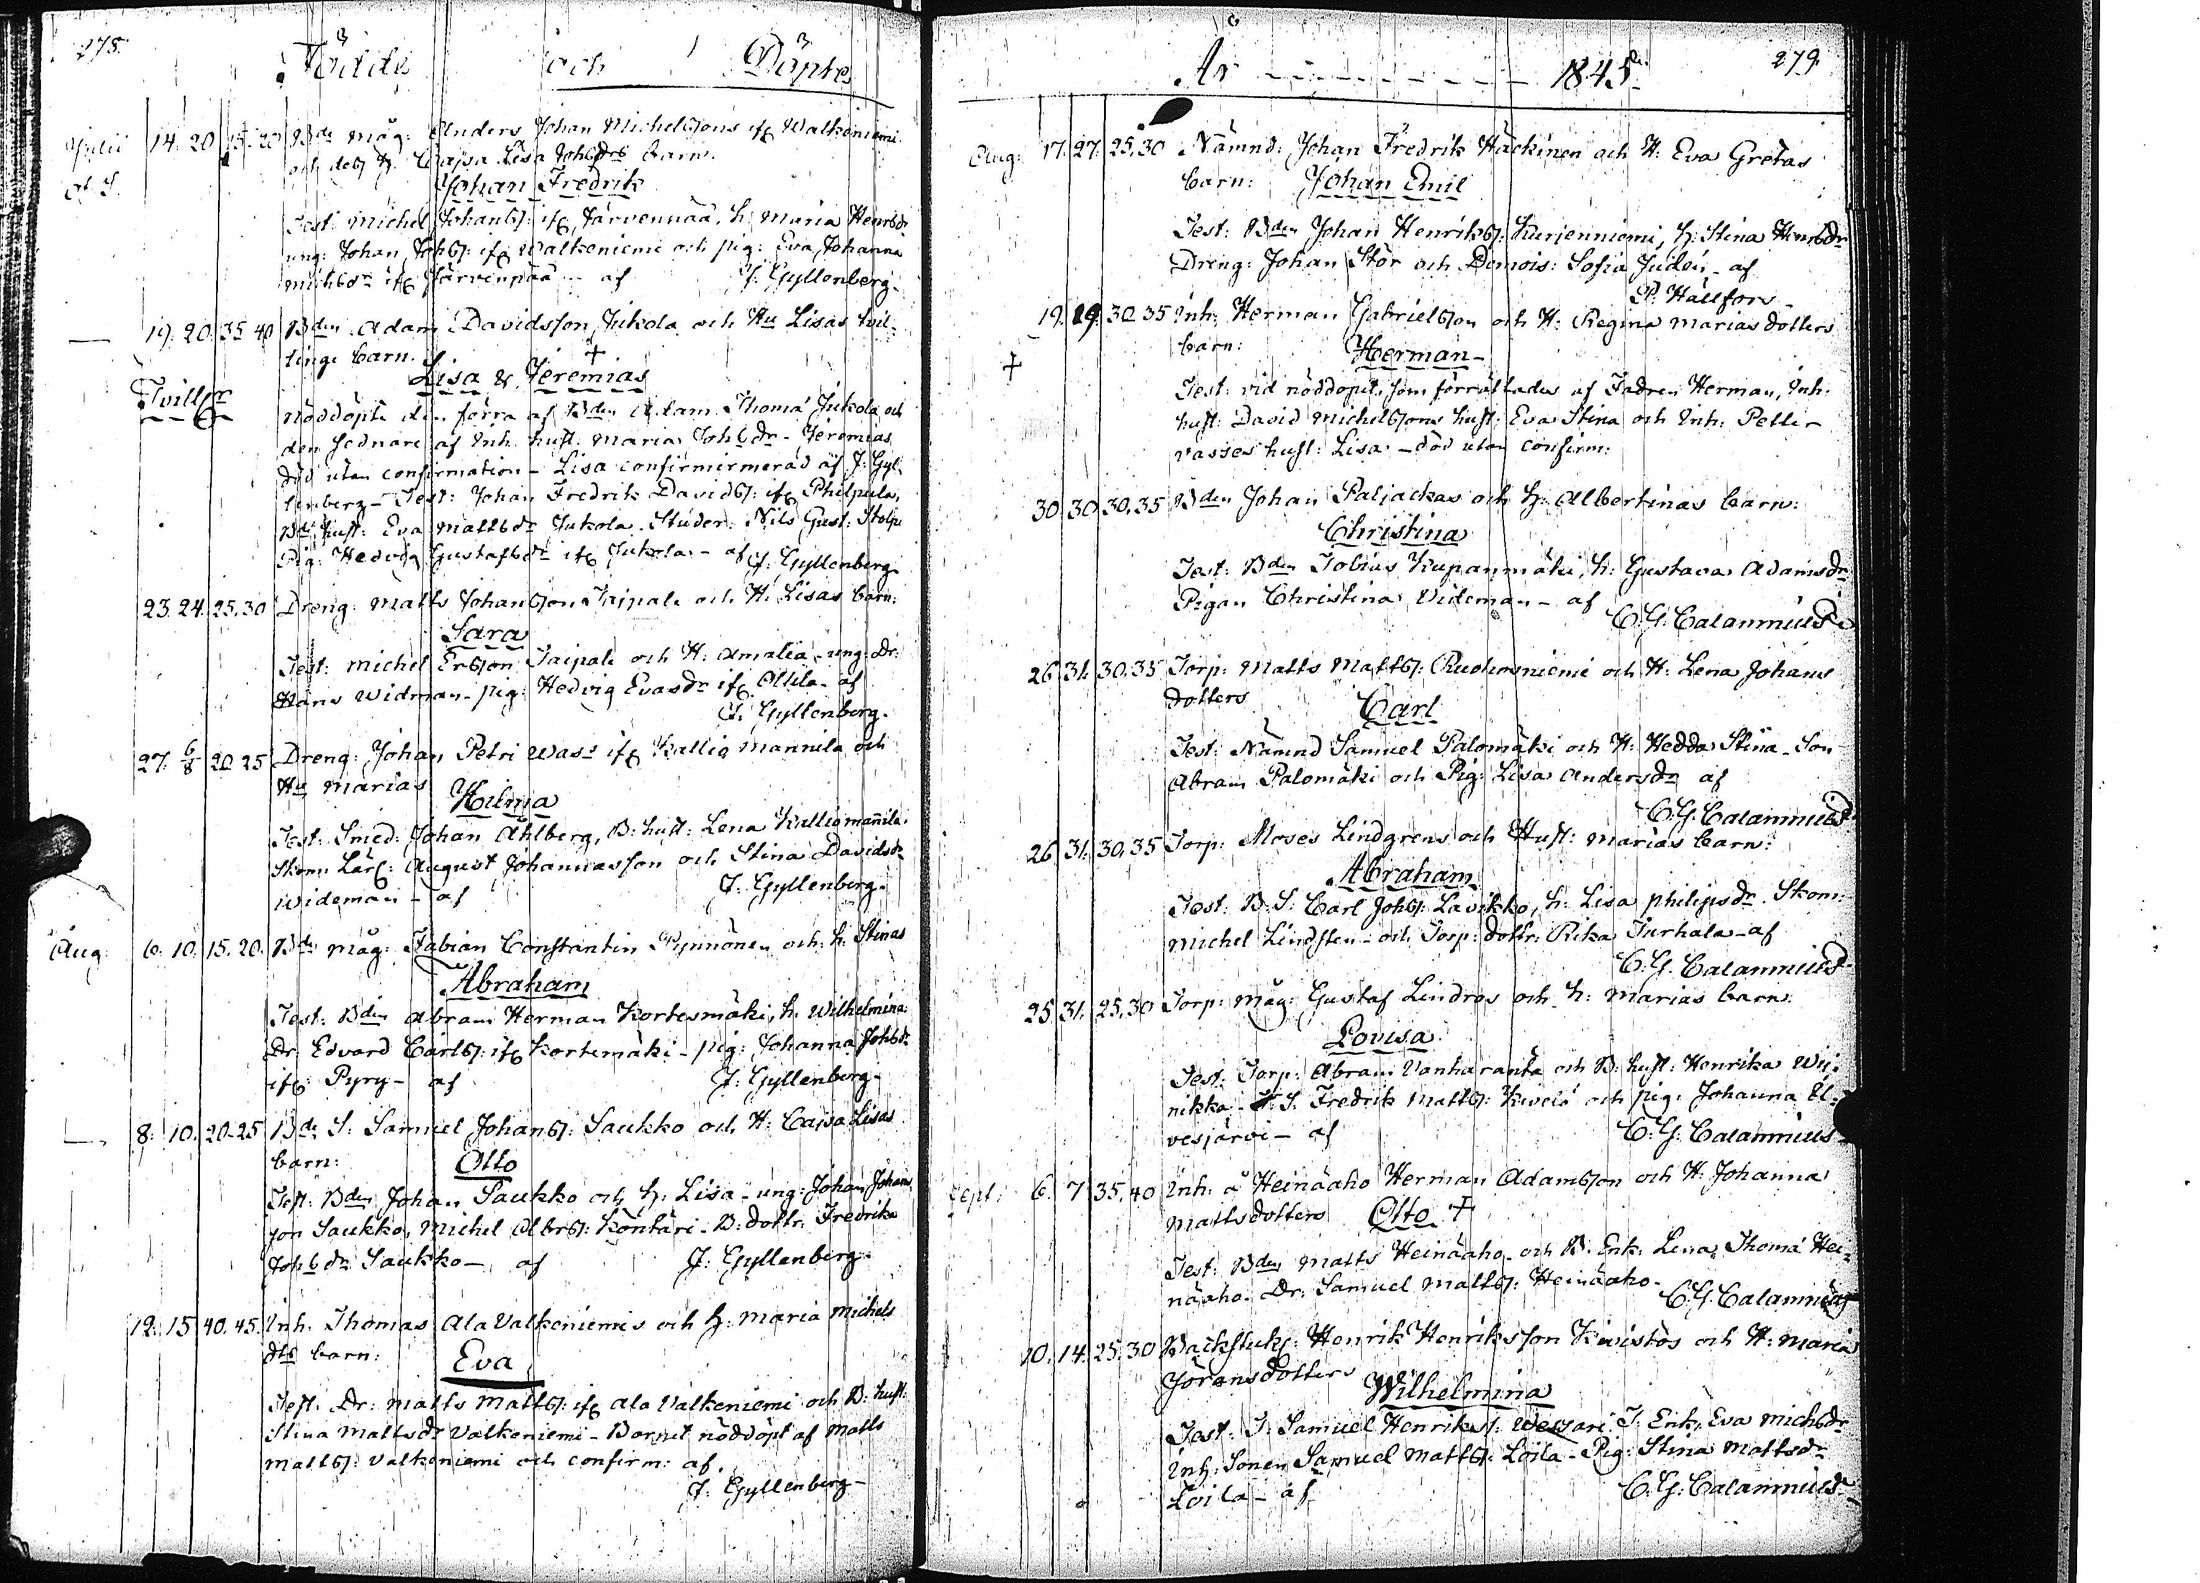 278.
Födde och Döpte
Julii 14. 20 15. 20 Bde måg: Anders Johan Michelssons ifr Walkeniemi
och dess h. Cajsa Lisa Johsdrs barn.
Johan Fredrik
Test: Michel Johanss: ifr Järvenpää, h: Maria Henrsdr
ung: Johan Johss: ifr Walkeniemi och pig: Eva Johanna
Michsdr ifr Järvenpää - af J. Gyllenberg.
19. 20. 35 40 Bden Adam Davidsson Jukola och Hu Lisas tvil-
linge barn. +
Lisa & Jeremias
Tvillr
nöddöpte den förra af Bden Adam Thoma Jukola och
den sednare af Inh. hust: Maria Johsdr - Jeremias
död utan confirmation - Lisa confirmirmerad af J: Gyl-
lenberg - Test: Johan Fredrik Davidss: ifr Philpula,
Bd: hust: Eva Mattsdr Jukola. Studer: Nils Gust: Stolpe
Pig: Hedvig Gustafsdr ifr Jukola - af J: Gyllenberg.
23. 24. 25. 30 Dreng: Matts Johansson Taipale och H: Lisas barn:
Sara
Test: Michel Ersson Taipale och H: Amalia - ung: Dr:
Hans Widman - pig: Hedvig Evasdr ifr Ollila - af
J: Gyllenberg.
27. 6/8 20 25 Dreng: Johan Petri Wass ifr Kallio Mannila och
Hu Marias
Hilma
Test: Smed: Johan Ahlberg, B: hust: Lena Kalliomannila.
Skom: Lärl: August Johannasson och Stina Davidsdr
Wideman - af J: Gyllenberg.
Aug: 6. 10. 15. 20. Bde måg: Fabian Constantin Pynnönen och h: Stinas
Abraham
Test: Bden Abram Herman Kortesmäki, h. Wilhelmina.
Dr: Edvard Carlss: ifr Kortemäki - pig: Johanna Johsdr
ifr Pyry - af J: Gyllenberg.
8. 10. 20-25 Bde S: Samuel Johanss: Saukko och H: Caisa Lisas
barn: Otto
Test: Bden Johan Saukko och h: Lisa - ung: Johan Johans
son Saukko, Michel Abrss: Kontäri - B: dottr. Fredrika
Johsdr Saukko - af J: Gyllenberg.
12. 15. 40. 45. Inh. Thomas Ala Valkeniemis och h: Maria Michels
dts barn: Eva
Test. Dr: Matts Mattss: ifr Ala Valkeniemi och B: hust:
Stina Mattsdr Valkeniemi - Barnet nöddöpt af Matts
Mattss: Valkeniemi och confirm: af
J: Gyllenberg -
År - - - - - - - - 1845 279.
Aug: 17. 27. 25. 30 Nämnd: Johan Fredrik Häckinen och H: Eva Gretas
barn: Johan Emil
Test: Bden Johan Henrikss: Kurjenniemi, h: Stina Henrsdr
Dreng: Johan Stör och Demois: Sofia Judén - af
P. Hällfors -
19. 19. 30 35 Inh: Herman Gabrielsson och H: Regina Marias dotters
+ barn: Herman -
Test: vid nöddopet, som förrättades af Fadren Herman, Inh:
hust: David Michelssons hust: Eva Stina och Inh: Petter
Vasses hust: Lisa - död utan confirm:
30. 30. 30. 35 Bden Johan Paljackas och h: Albertinas barn:
Christina
Test: Bden Tobias Kupanmäki, h: Gustava Adamsdr
Pigan Christina Videman - af C. G. Calamnius
26 31. 30. 35 Torp: Matts Mattss: Ruohoniemi och H: Lena Johans
dotters Carl
Test: Nämnd Samuel Palomäki och H: Hedda Stina - Son
Abram Palomäki och Pig: Lisa Andersdr af
C. G. Calamnius
26 31. 30. 35 Torp: Moses Lindgrens och Hust: Marias barn:
Abraham
Test: B: S: Carl Johss: Lavikko, h: Lisa Philipsdr. Skom:
Michel Lindsten - och Torp: dottr: Rika Turhala - af
C. G. Calamnius
25 31. 25. 30 Torp: måg: Gustaf Lindros och h: Marias barn:
Lovisa
Test: Torp: Abram Vanharanta och B: hust: Henrika Wii-
nikka - T. S. Fredrik Mattss: Kivelä och pig: Johanna Ul-
vesjärvi - af C: G: Calamnius
Sept: 6. 7 35. 40 Inh: å Heinäaho Herman Adamsson och H: Johanna
Mattsdotters Otto +
Test: Bden Matts Heinäaho och B: Enk: Lena Thoma Hei-
näaho. Dr: Samuel Mattss: Heinäaho.
C. G. Calamnius
10. 14. 25. 30 Backstuks: Henrik Henriksson Kivistös och H: Maria
Göransdotters
Wilhelmina
Test: T: Samuel Henrikss: Wessari. T: Enk: Eva Michsdr
Inh: Sonen Samuel Mattss: Loila - Pig: Stina Mattsdr
Loila - af C: G: Calamnius